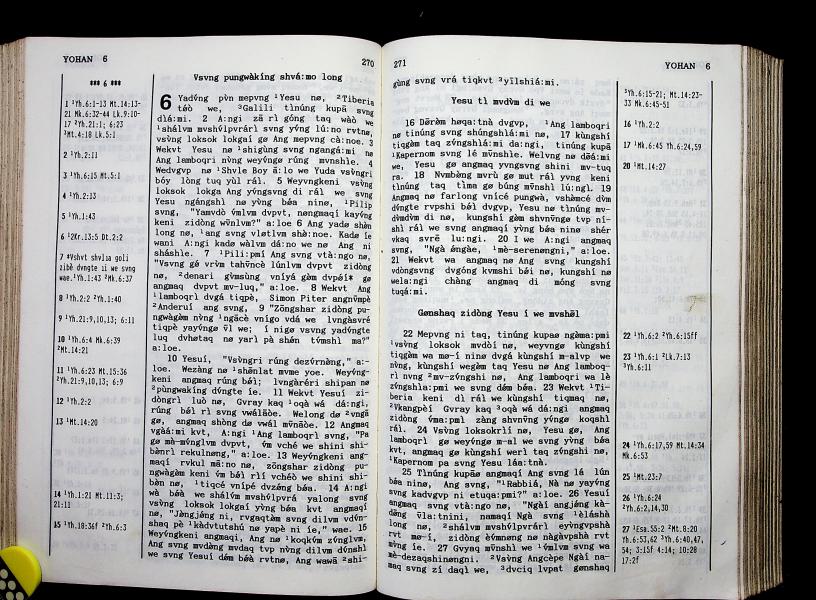 YOHAN 6
270
*** 6 ***
1 ¹Yh.6:1-13 Mt.14:13-
21 Mk.6:32-44 Lk.9:10-
17 ²Yh.21:1; 6:23
³Mt.4:18 Lk.5:1
2 ¹Yh.2:11
3 ¹Yh.6:15 Mt.5:1
4 ¹Yh.2:13
5 ¹Yh.1:43
6 ¹2Kr.13:5 Dt.2:2
7 *Vshvt shvløa goli
zibè dvngte ìi we svng
wae. ¹Yh.1:43 ²Mk.6:37
8 ¹Yh.2:2 ²Yh.1:40
9 ¹Yh.21:9,10,13; 6:11
10 ¹Yh.6:4 Mk.6:39
²Mt.14:21
11 ¹Yh.6:23 Mt.15:36
²Yh.21:9,10,13; 6:9
12 ¹Yh.2:2
13 ¹Mt.14:20
14 ¹Yh.1:21 Mt.11:3;
21:11
15 ¹Yh.18:36f ²Yh.6:3
Vsvng pungwàkíng shvá:mo long
6 Yadv́ng pv̀n mepvng ¹Yesu nø, ²Tiberia
táò we, ³Galili tìnúng kupà svng
dì á:mi. 2 A:ngi zà rì góng taq wàò we
¹shálv́m mvshv́lpvrárì svng yv́ng lú:no rvtnø,
vsv̀ng loksok lokgaí gø Ang mepvng cà:noe. 3
Wekvt Yesu nø ¹shigùng svng ngangá:mì nø
Ang lamboqrì nv̀ng weyv́nge rúng mvnshìe. 4
Wedvgvp nø ¹Shvle Boy ā:lo we Yuda vsv̀ngrì
bóy lòng tuq yùl rál. 5 Weyvngkeni vsv̀ng
loksok lokga Ang yv́ngsvng dì rál we svng
Yesu ngángshì nø yv̀ng béa nìnø, ¹Pilip
svng, "Yamvdò v́mlv̀m dvpvt, nøngmaqí kayv́ng
keni zìdòng wv̄nlv̀m?" a:loe 6 Ang yadø shè̄n
long nø, ¹ang svng vløtlv̀m shè:noe. Kadø íe
wanì A:ngi kadø wàlv̀m dá:no we nø Ang nì
sháshìe. 7 ¹Pili:pmí Ang svng vtà:ngo nø,
"Vsv̀ng gé vrv̀m tahvncè lúnlv̀m dvpvt zìdòng
nø, ²denarì gv̀msùng vníyá gàm dvpèí* gø
angmaq dvpvt mv-luq," a:loe. 8 Wekvt Ang
¹lamboqrì dvgá tiqpè, Simon Piter angnv̀mpè
²Anderuí ang svng, 9 "Zōngshar zìdòng pu-
ngwàgàm nv̀ng ¹ngàcè vnigo vdá we lvngàsvré
tiqpè yayv́ngø v̄l we; í nìgø vsvng yadv́ngte
luq dvhøtaq nø yarì pà shén tv́mshì ma?"
a:loe.
10 Yesuí, "Vsv̀ngrì rúng dezv́rnàng," a:-
loe. Wezàng nø ¹shènlat mvme yoe. Weyv́ng-
keni angmaq rúng bél; lvngàréri shìpan nø
²pùngwàking dv́ngte íe. 11 Wekvt Yesuí zì-
dòngrì luò nø, Gvray kaq ¹oqà wá dá:ngì,
rúng bél rì svng vwálàòe. Welong dø ²vngà
gø, angmaq shòng dø vwál mv̀nàòe. 12 Angmaq
vgàá:mì kvt, A:ngi ¹Ang lamboqrì svng, "Pa
gø mà-mv́nglv̀m dvpvt, v́m vché we shini shì-
bènrì rekulnøng," a:loe. 13 Weyv́ngkeni ang-
maqí rvkul mā:no nø, zōngshar zìdòng pu-
ngwàgàm keni v́m bél rìí vchéò we shini shì-
bèn nø, ¹tiqcé vnípé dvzéng béa. 14 A:ngi
wà béò we shálv́m mvshv́lpvrá yalòng svng
vsv̀ng loksok lokgaí yv̀ng béa kvt angmaqí
nø, "Jèngjéng nì, rvgaqtèm svng dìlv̀m vdv̀n-
shaq pè ¹kàdvtutshù nø yapè nì íe," wae. 15
Weyv́ngkeni angmaqí, Ang nø ¹koqkv̀m zv́nglv̀m,
Ang svng mvdèng mvdaq tvp nv̀ng dìlv̀m dv́nshì
we svng Yesuí dèm béà rvtnø, Ang wawà ²shì-
271
YOHAN 6
gùng svng vrá tiqkvt ³yìlshìá:mì.
Yesu tì mvdv̀m dì we
16 Dø̄rèm høqa:tnà dvgvp, ¹Ang lamboqrì
nø tìnúng svng shúngshìá:mì nø, 17 kùngshí
tiqgèm taq zv́ngshìá:mì da:ngì, tìnúng kupà
¹Kapernom svng lé mv́nshìe. Welvng nø dø̄á:mì
we, Yesu gø angmaq yvngsvng shini mv-tuq
ra. 18 Nvmbèng mvrù gø mut rál yvng keni
tìnúng taq tìma gø búng mv̀nshì lú:ngì. 19
Angmaq nø farlong vnícé pungwà, vshèmcé dv́m
dv́ngte rvpshì bél dvgvp, Yesu nø tìnúng mv-
dv́mdv̀m dì nø, kùngshí gàm shvnv̄ngø tvp ní-
shì rál we svng angmaqí yv̀ng béa nìnø shér
vkaq svré lu:ngì. 20 I we A:ngi angmaq
svng, "Ngà éngàe, ¹mè-serenøngnì," a:loe.
21 Wekvt wa angmaq nø Ang svng kùngshí
vdòngsvng dvgóng kvmshì béì nø, kungshí nø
wela:ngì chàng angmaq dì móng svng
tuqá:mì.
Gønshaq zìdòng Yesu í we mvshø̄l
22 Mepvng ni taq, tìnúng kupaø ngèma:pmì
¹vsv̀ng loksok mvdòì nø, weyvngø kùngshí
tiqgèm wa mø-í nìnø dvgá kùngshí m-alvp we
nv̀ng, kùngshí wegàm taq Yesu nø Ang lamboq-
rì nvng ²mv-zv́ngshì nø, Ang lamboqrì wa lè
zv́ngshìa:pmì we svng dèm béa. 23 Wekvt ¹Ti-
beria keni dì rál we kùngshí tiqmaq nø,
²Vkangpèí Gvray kaq ³oqà wá dá:ngì angmaq
zìdòng v́ma:pmì zàng shvnv̄ng yv́ngø koqshì
rál. 24 Vsv̀ng loksokrìí nø, Yesu gø, Ang
lamboqrì gø weyv́ngø m-al we svng yv̀ng béa
kvt, angmaq gø kùngshí werì taq zv́ngshì nø,
¹Kapernom pà svng Yesu láa:tnà.
25 Tìnúng kupàø angmaqí Ang svng lá lún
béa nìnø, Ang svng, "¹Rabbiá, Nà nø yayv́ng
svng kadvgvp nì etuqa:pmì?" a:loe. 26 Yesuí
angmaq svng vtà:ngo nø, "Ngàí angjéng kà-
dèng v̄la:tnìnì, namaqí Ngà svng ¹èláshì
long nø, ²shálv́m mvshv́lpvrárì eyv̀ngvpshà
rvt mø-í, zìdòng èv́mnøng nø nàgàvpshà rvt
mv̀ng íe. 27 Gvyaq mv̀nshì we ¹v́mlv̀m svng wa
mè-dezaqshìnøngnì. ²Vsv̀ng Angcèpe Ngàí na-
maq svng zí daqì we, ³dvciq lvpat gønshaq
³Yh.6:15-21; Mt.14:23-
33 Mk.6:45-51
16 ¹Yh.2:2
17 ¹Mk.6:45 Yh.6:24,59
20 ¹Mt.14:27
22 ¹Yh.6:2 ²Yh.6:15ff
23 ¹Yh.6:1 ²Lk.7:13
³Yh.6:11
24 ¹Yh.6:17,59 Mt.14:34
Mk.6:53
25 ¹Mt.23:7
26 ¹Yh.6:24
²Yh.6:2,14,30
27 ¹Esa.55:2 ²Mt.8:20
Yh.6:53,62 ³Yh.6:40,47,
54; 3:15f 4:14; 10:28
17:2f